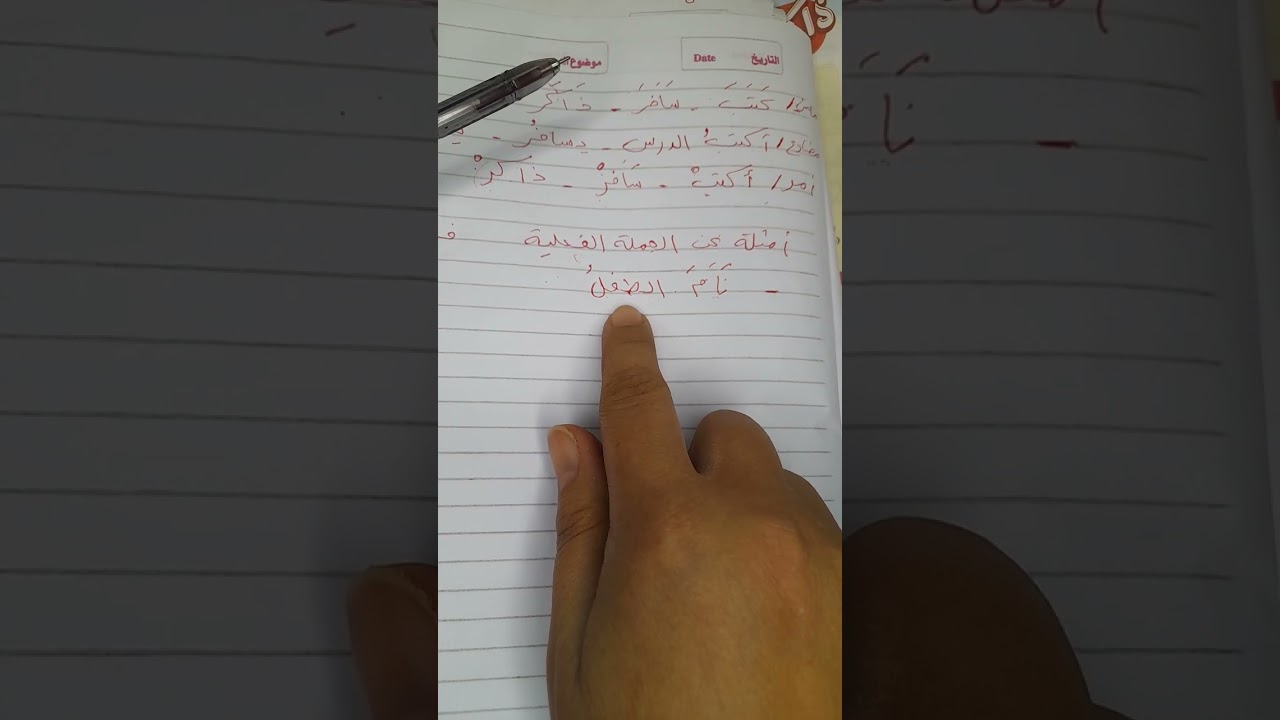 التاريخ Date موضوع
ماضي/ كَتَبَ - سَافَرَ - ذَاكَرَ
مضارع/ أكتبُ الدرس - يسافرُ - يـ
أمر/ أكتبْ - سَافرْ - ذَاكرْ
أمثلة عن الجملة الفعلية
- نَامَ الطفلُ